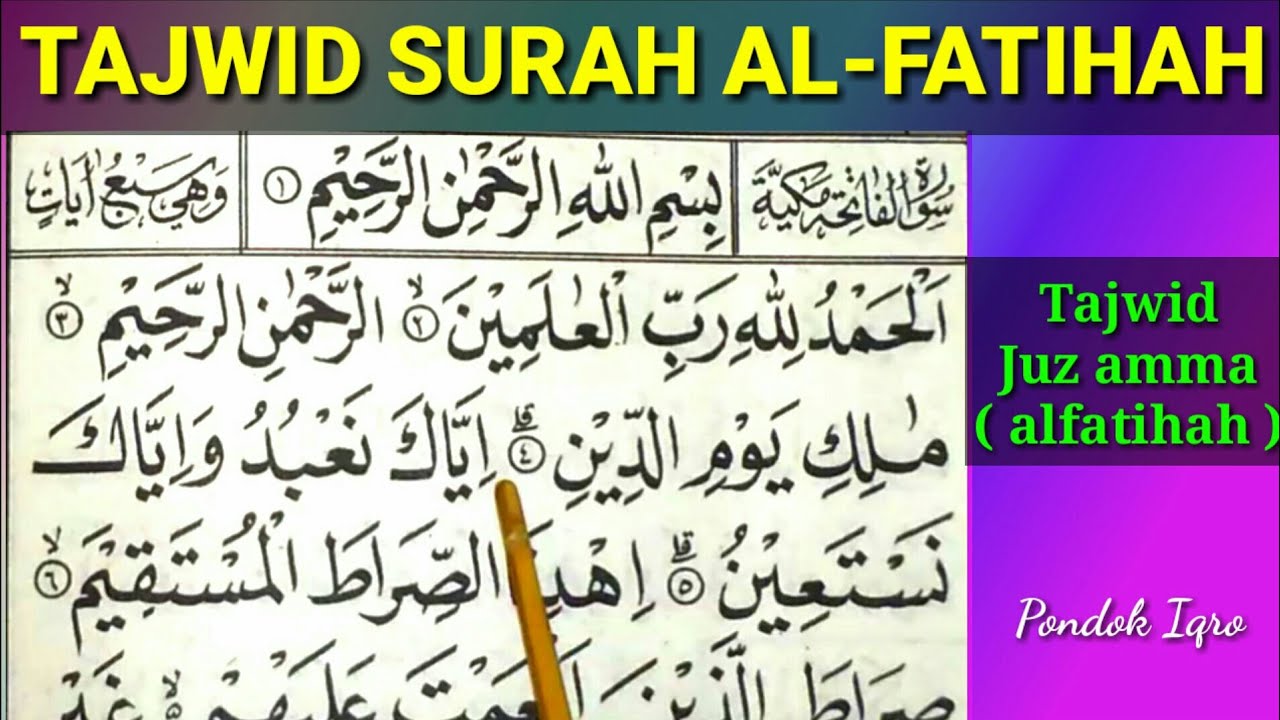 TAJWID SURAH AL-FATIHAH
سُوْرَةُ الْفَاتِحَةِ مَكِّيَّةٌ
بِسْمِ اللّٰهِ الرَّحْمٰنِ الرَّحِيْمِ ١
وَهِيَ سَبْعُ أٰيَاتٍ
اَلْحَمْدُ لِلّٰهِ رَبِّ الْعٰلَمِيْنَ ۙ ٢ الرَّحْمٰنِ الرَّحِيْمِ ۙ ٣
مٰلِكِ يَوْمِ الدِّيْنِ ۗ ٤ اِيَّاكَ نَعْبُدُ وَاِيَّاكَ
نَسْتَعِيْنُ ۗ ٥ اِهْدِنَا الصِّرَاطَ الْمُسْتَقِيْمَ ۙ ٦
صِرَاطَ الَّذِيْنَ اَنْعَمْتَ عَلَيْهِمْ ۙ غَيْرِ
Tajwid
Juz amma
( alfatihah )
Pondok Iqro